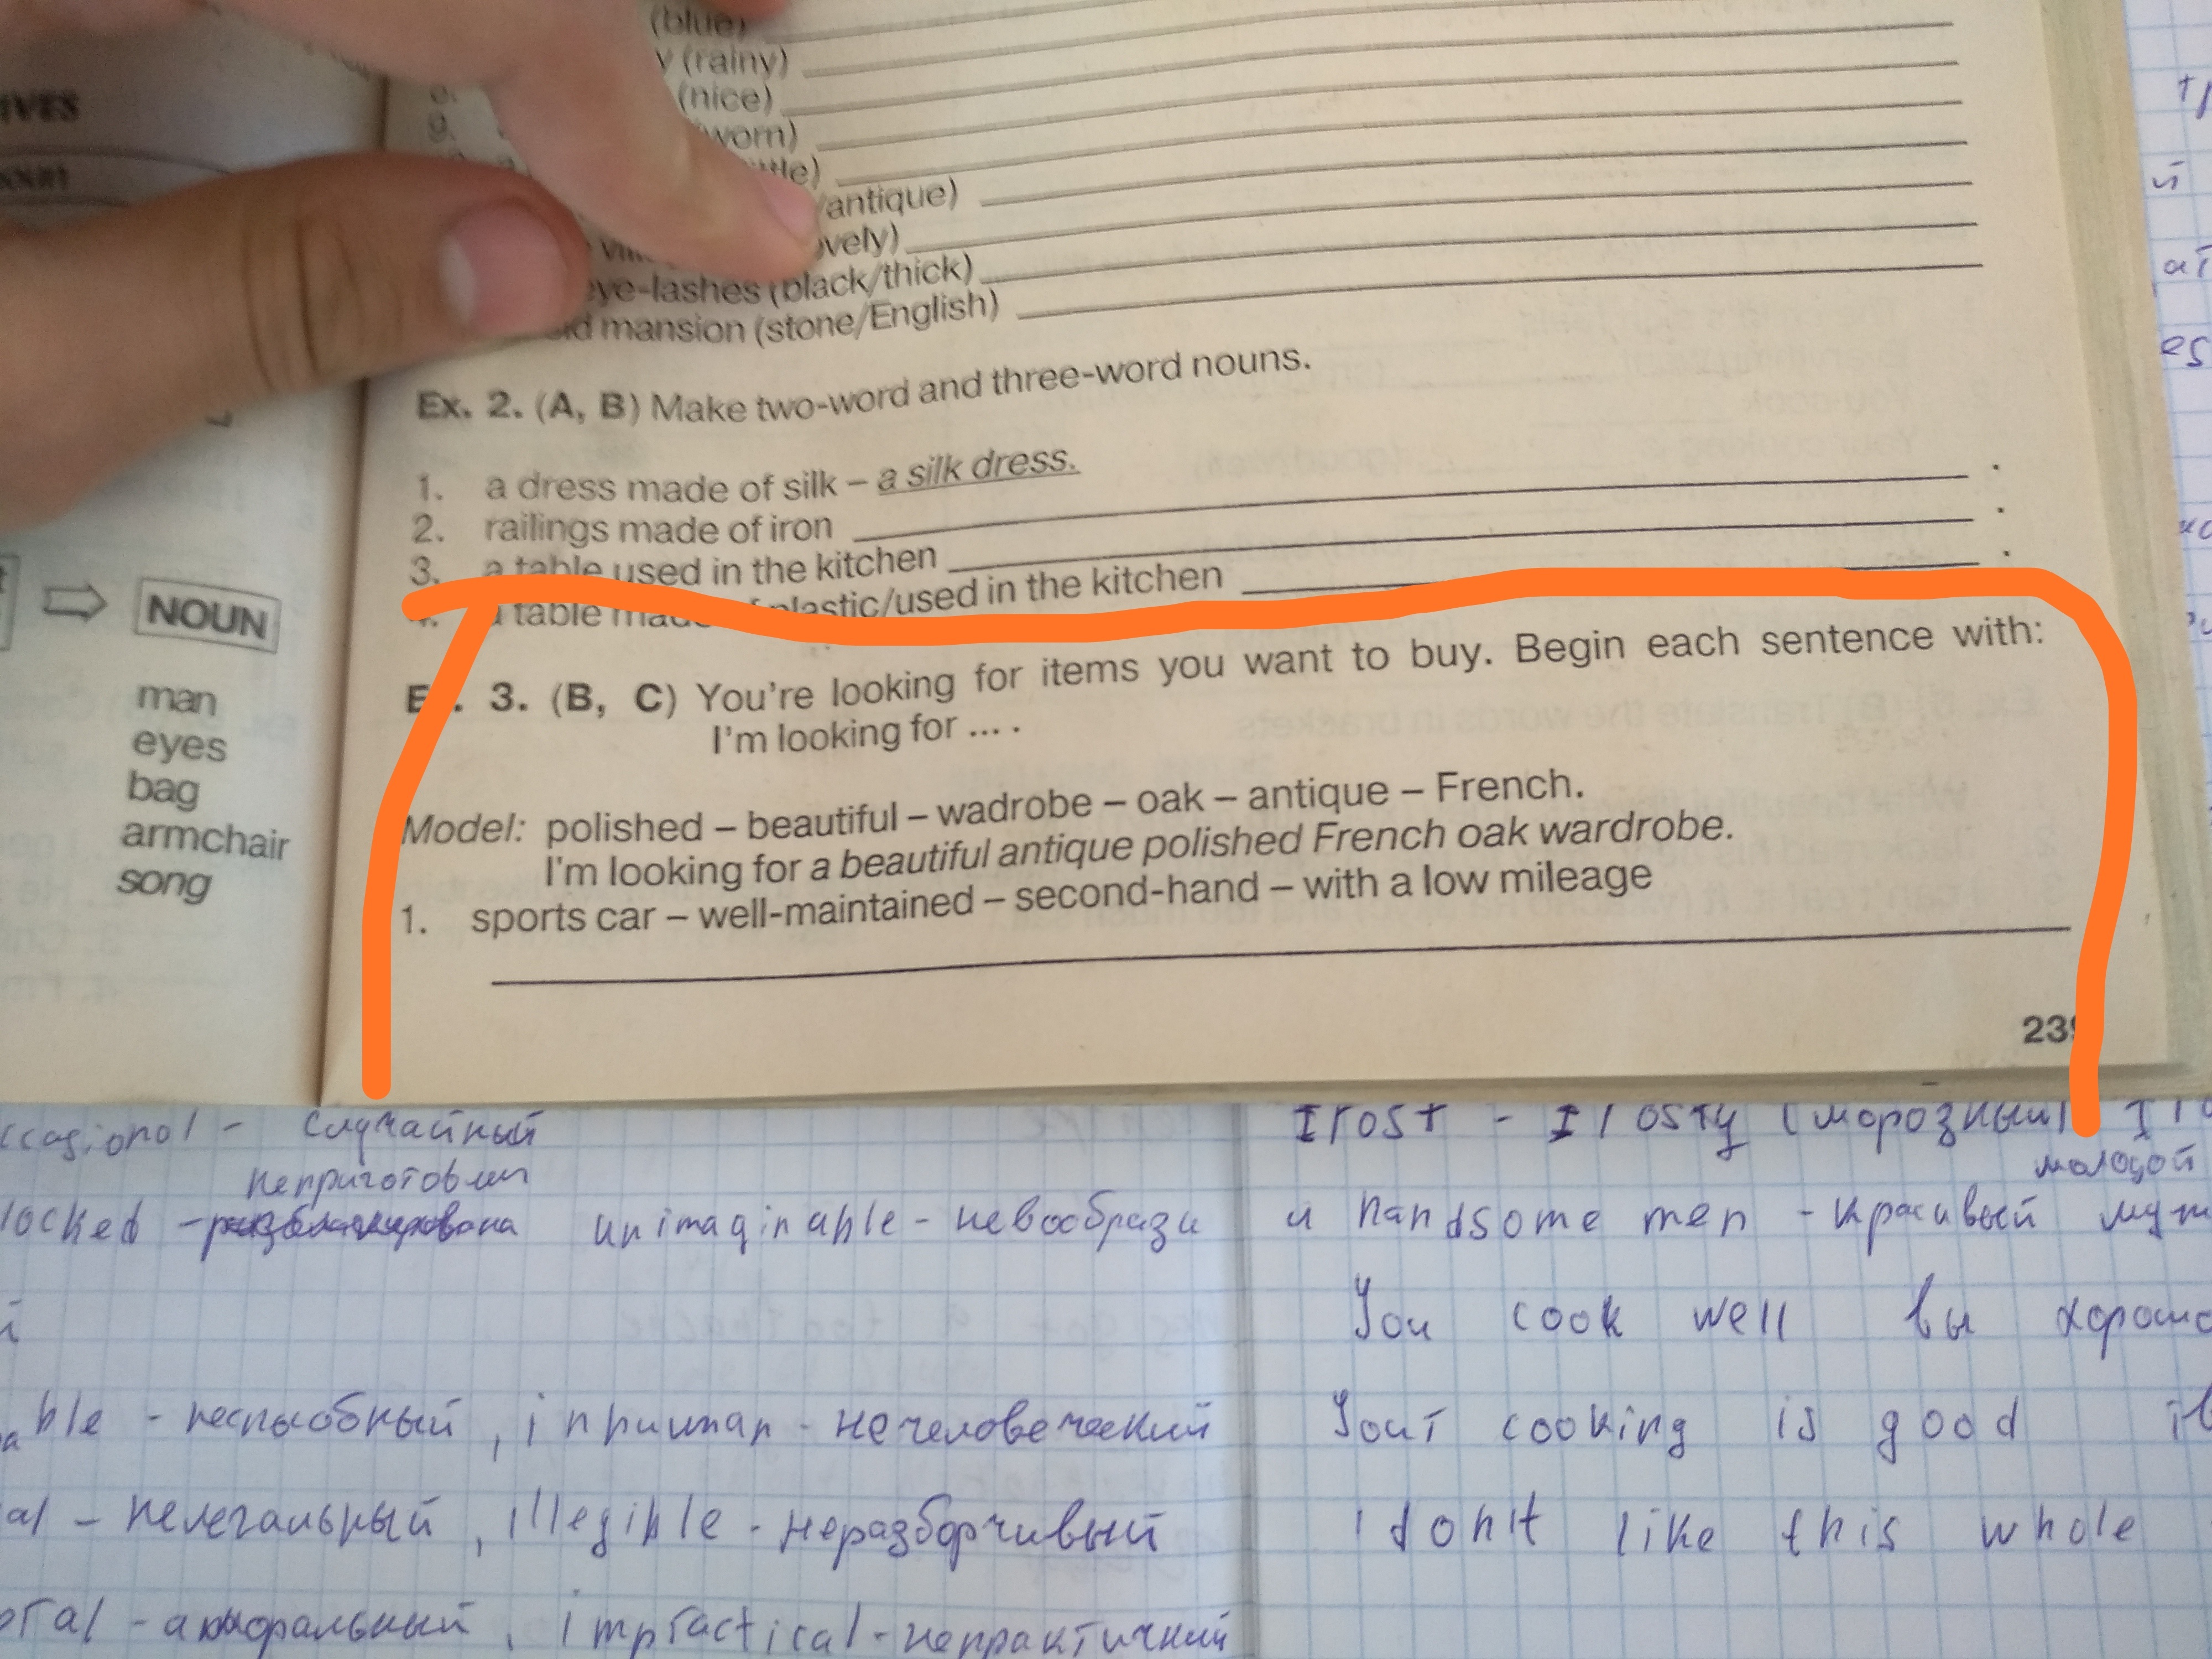 IVES
NOUN
man
eyes
bag
armchair
song
(blue)
y (rainy)
(nice)
9. worn)
/antique)
eye-lashes (black/thick)
mansion (stone/English)
Ex. 2. (A, B) Make two-word and three-word nouns.
1. a dress made of silk – a silk dress.
2. railings made of iron .
3. a table used in the kitchen .
4. a table made of plastic/used in the kitchen .
Ex. 3. (B, C) You're looking for items you want to buy. Begin each sentence with:
I'm looking for ... .
Model: polished – beautiful – wadrobe – oak – antique – French.
I'm looking for a beautiful antique polished French oak wardrobe.
1. sports car – well-maintained – second-hand – with a low mileage
239
случайный
locked - unimaginable - невообрази
неспособный , нечеловеческий
al - нелегальный , illegible - неразборчивый
impractical - непрактичный
frost - frosty (морозный)
молодой
a handsome men - красивый муж
You cook well вы хорошо
Your cooking is good
i don't like this whole